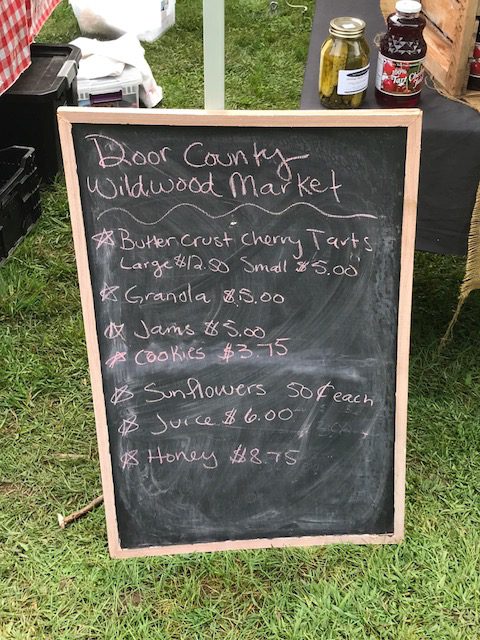 Door County
Wildwood Market
☆ Butter crust Cherry Tarts
Large $12.50 Small $5.00
☆ Granola $5.00
☆ Jams $5.00
☆ Cookies $3.75
☆ Sunflowers 50¢ each
☆ Juice $6.00
☆ Honey $8.75
100%
Tart Cherry